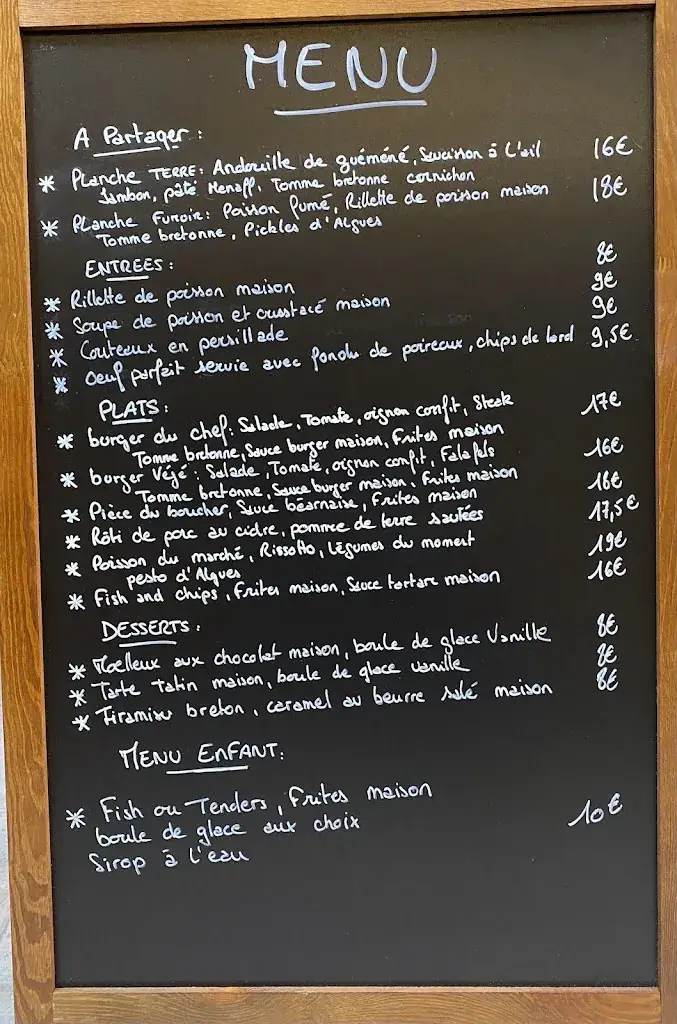 MENU
A Partager :
* Planche TERRE : Andouille de guéméné, Saucisson à l'ail 16€
Jambon, pâté Henaff, Tomme bretonne cornichon
* Planche Fumoir : Poisson fumé, Rillette de poisson maison 18€
Tomme bretonne, Pickles d'Algues
ENTREES :
* Rillette de poisson maison 8€
* Soupe de poisson et crustacé maison 9€
* Couteaux en persillade 9€
* Oeuf parfait servie avec fondu de poireaux, chips de lard 9,5€
PLATS :
* burger du chef : Salade, Tomate, oignon confit, Steak 17€
Tomme bretonne, Sauce burger maison, Frites maison
* burger Végé : Salade, Tomate, oignon confit, Falafels 16€
Tomme bretonne, Sauce burger maison, Frites maison
* Pièce du boucher, Sauce béarnaise, Frites maison 18€
* Rôti de porc au cidre, pomme de terre sautées 17,5€
* Poisson du marché, Rissotto, Légumes du moment 19€
pesto d'Algues
* Fish and chips, Frites maison, Sauce tartare maison 16€
DESSERTS :
* Moelleux aux chocolat maison, boule de glace Vanille 8€
* Tarte Tatin maison, boule de glace vanille 8€
* Tiramisu breton, caramel au beurre salé maison 8€
MENU ENFANT :
* Fish ou Tenders, Frites maison
boule de glace aux choix 10€
Sirop à l'eau